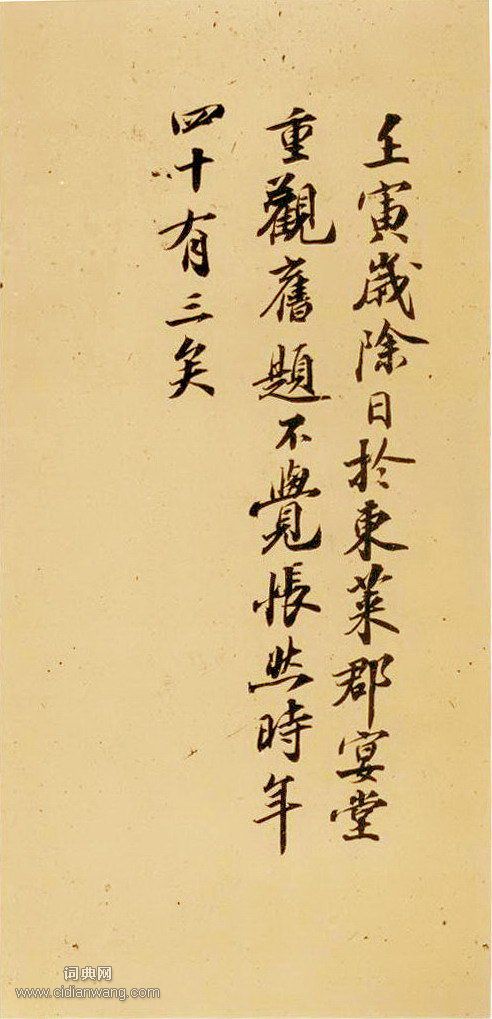 壬寅歲除日於東萊郡宴堂
重觀舊題不覺悵然時年
四十有三矣
词典网
www.cidianwang.com